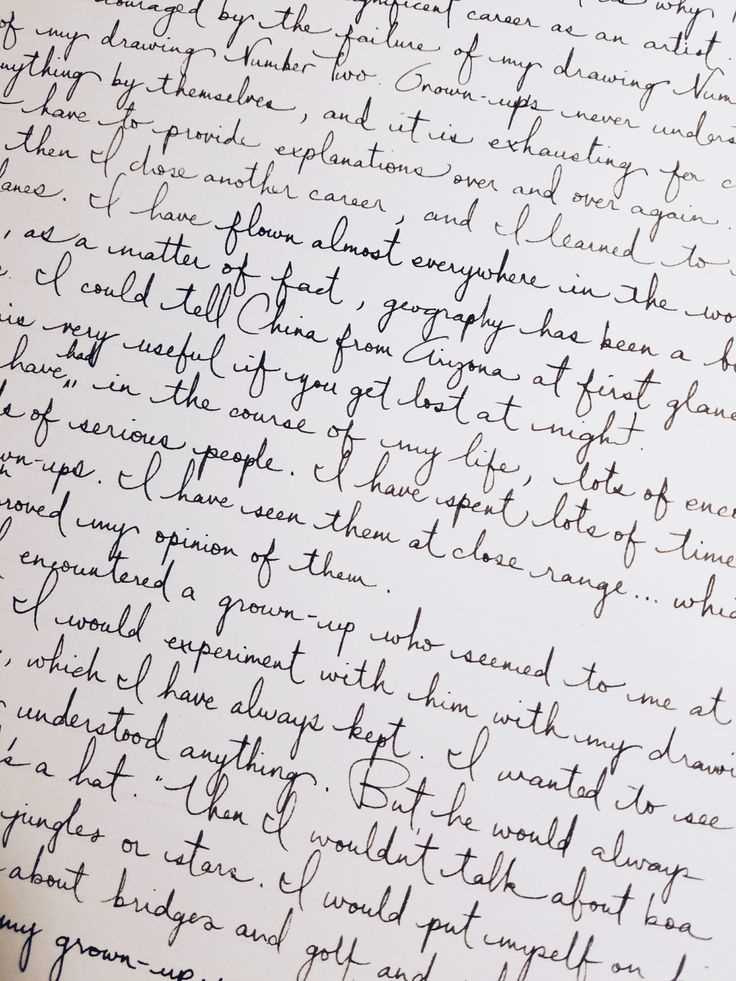 is why I
couraged by the failure of my drawing Num
gnificent career as an artist.
of my drawing Number Two. Grown-ups never underst
nything by themselves, and it is exhausting for c
have to provide explanations over and over again.
then I chose another career, and I learned to
lanes. I have flown almost everywhere in the wo
, as a matter of fact, geography has been a b
. I could tell China from Arizona at first glanc
is very useful if you get lost at night.
have had in the course of my life, lots of enco
s of serious people. I have spent lots of time
wn-ups. I have seen them at close range... whic
roved my opinion of them.
encountered a grown-up who seemed to me at
I would experiment with him with my drawi
, which I have always kept. I wanted to see
understood anything. But, he would always
's a hat." Then I wouldn't talk about boa
jungles or stars. I would put myself on
about bridges and golf and
my grown-up